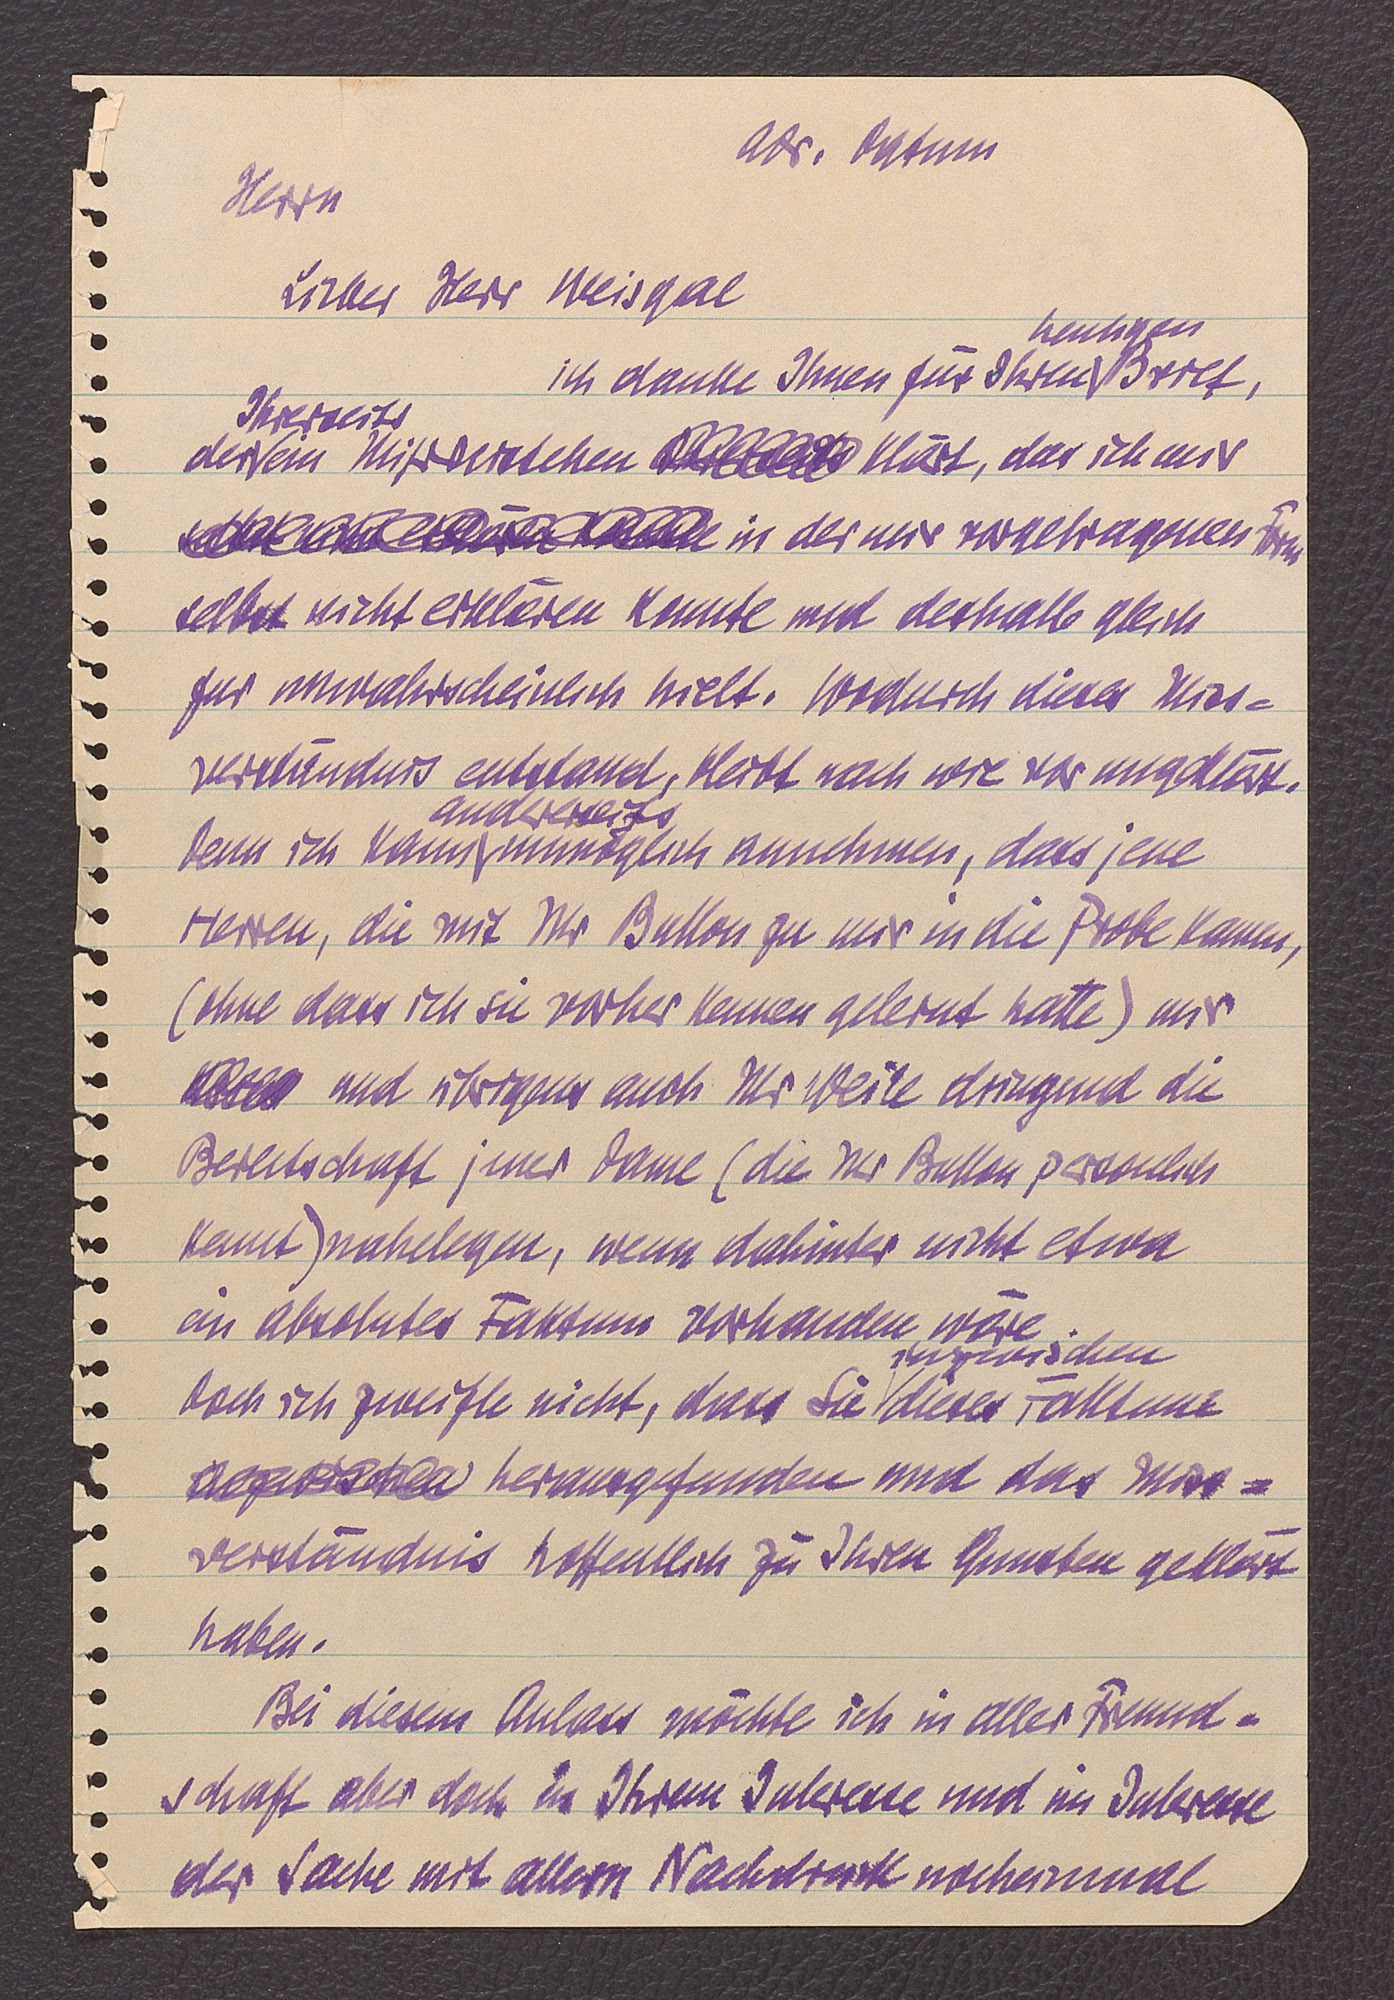 Adr. Datum
Herrn
Lieber Herr Weisgal
heutigen
ich danke Ihnen für Ihren Brief,
Ihrerseits
der ein Missverstehen klärt, das ich mir
in der mir vorgetragenen Form
selbst nicht erklären konnte und deshalb gleich
für unwahrscheinlich hielt. Wodurch dieses Miss=
verständnis entstand, bleibt nach wie vor ungeklärt.
andererseits
Denn ich kann unmöglich annehmen, dass jene
Herren, die mit Mr Bullon zu mir in die Probe kamen,
(ohne dass ich sie vorher kennen gelernt hatte) mir
und übrigens auch Mr Weill dringend die
Bereitschaft jener Dame (die Mr Bullon persönlich
kennt) nahelegen, wenn dahinter nicht etwa
ein absolutes Faktum vorhanden wäre
inzwischen
Doch ich zweifle nicht, dass Sie dieses Faktum
herausgefunden und das Miss=
verständnis hoffentlich zu Ihren Gunsten geklärt
haben.
Bei diesem Anlass möchte ich in aller Freund=
schaft aber doch in Ihrem Interesse und im Interesse
der Sache mit allem Nachdruck nocheinmal